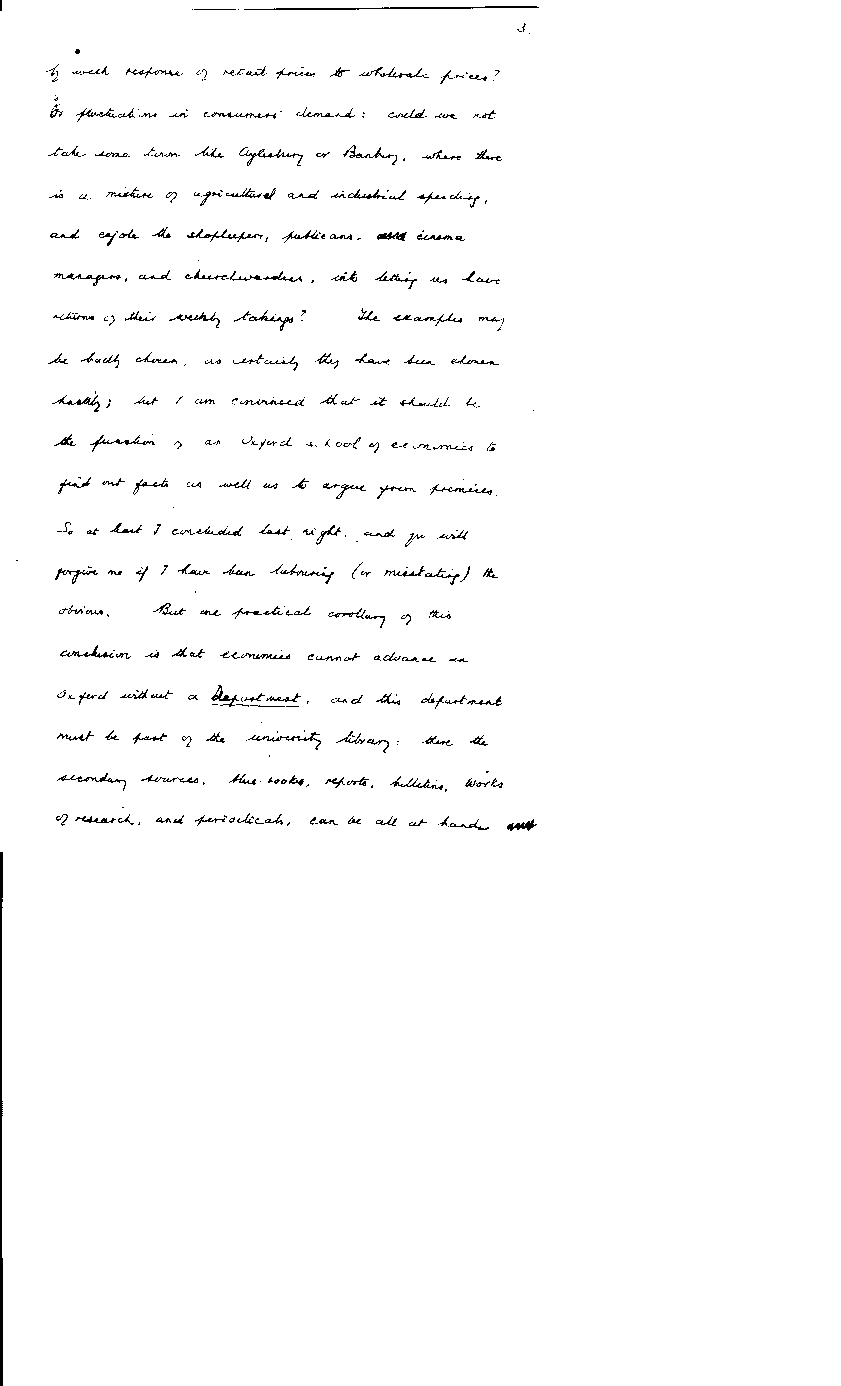 3.
by week response of retail prices to wholesale prices?
Or fluctuations in consumers' demand: could we not
take some town like Aylesbury or Banbury, where there
is a mixture of agricultural and industrial spending,
and cajole the shopkeepers, publicans, cinema
managers, and churchwardens, into letting us have
returns of their weekly takings? The examples may
be badly chosen, as certainly they have been chosen
hastily; but I am convinced that it should be
the function of an Oxford school of economics to
find out facts as well as to argue from premises.
So at least I concluded last night, and you will
forgive me if I have been labouring (or misstating) the
obvious. But one practical corollary of this
conclusion is that economics cannot advance in
Oxford without a Department, and this department
must be part of the university library: there the
secondary sources, blue-books, reports, bulletins, works
of research, and periodicals, can be all at hand